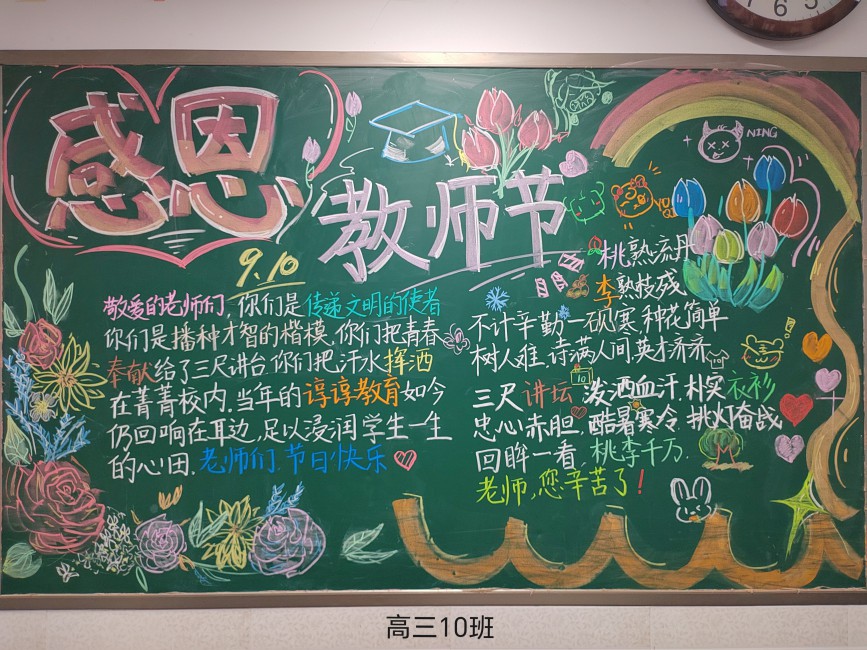 感恩
教师节
9.10
NING
敬爱的老师们,你们是传递文明的使者
你们是播种才智的楷模,你们把青春
奉献给了三尺讲台,你们把汗水挥洒
在菁菁校内,当年的谆谆教育如今
仍回响在耳边,足以浸润学生一生
的心田.老师们.节日快乐
桃熟流丹
李熟枝残
不计辛勤一砚寒,种花简单
树人难.诗满人间,英才济济
三尺讲坛泼洒血汗.朴实衣衫
忠心赤胆.酷暑寒冷.挑灯奋战
回眸一看,桃李千万.
老师,您辛苦了!
高三10班
6 5